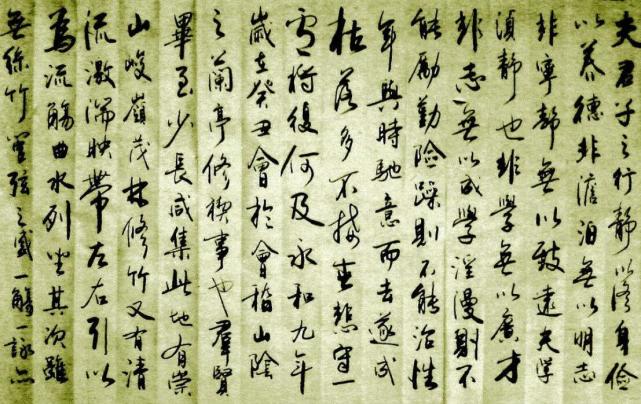 夫君子之行靜以修身儉
以養德非澹泊無以明志
非寧靜無以致遠夫學
須靜也非學無以廣才
非志無以成學淫漫則不
能勵勤險躁則不能治性
年與時馳意而去遂成
枯落多不接世悲守一
將復何及永和九年
歲在癸丑會於會稽山陰
之蘭亭修禊事也羣賢
畢至少長咸集此地有崇
山峻嶺茂林修竹又有清
流激湍映帶左右引以
為流觴曲水列坐其次雖
無絲竹管弦之盛一觴一詠亦